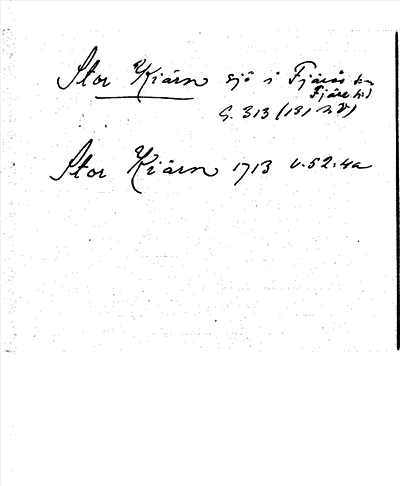 Stor Kiärn sjö i Fjärås sn
Fjäre hd
G. 313 (131 NV)
Stor Kiärn 1713 v. 52:4a